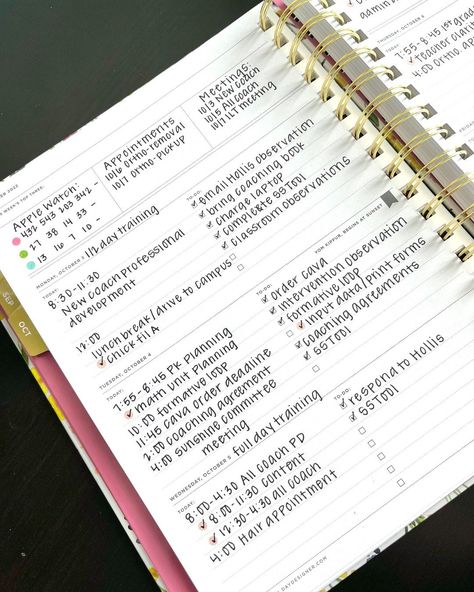 THURSDAY, OCTOBER 6
TODAY:
7:55-8:45 1st grad
Teacher clarit
4:00 Ortho. app
WEEK'S TOP THREE:
Apple Watch:
432 543 203 342
27 38 14 33 -
13 16 7 10 -
Appointments
10/6 Ortho-removal
10/7 Ortho-PickUP
Meetings:
10/3 New Coach
10/5 All coach
10/7 ILT meeting
MONDAY, OCTOBER 3
1/2 day training
TODAY:
8:30-11:30
New coach professional
development
12:00
lunch break/drive to campus
Chick fil A
TO-DO:
email Hollis observation
bring coaching book
charge laptop
complete SSTODI
classroom observations
TUESDAY, OCTOBER 4
YOM KIPPUR, BEGINS AT SUNSET
TODAY:
7:55-8:45 PK Planning
math unit Planning
10:00 formative loop
11:45 cava order deadline
2:00 coaching agreement
4:00 sunshine committee
meeting
TO-DO:
order cava
intervention observation
formative loop
Input data/print forms
coaching agreements
SSTODI
WEDNESDAY, OCTOBER 5
Full day training
TODAY:
8:00-4:30 All coach PD
8:00-11:30 content
12:30-4:30 all coach
4:00 Hair appointment
TO-DO:
respond to Hollis
SSTODI
DAYDESIGNER.COM
SEP
OCT